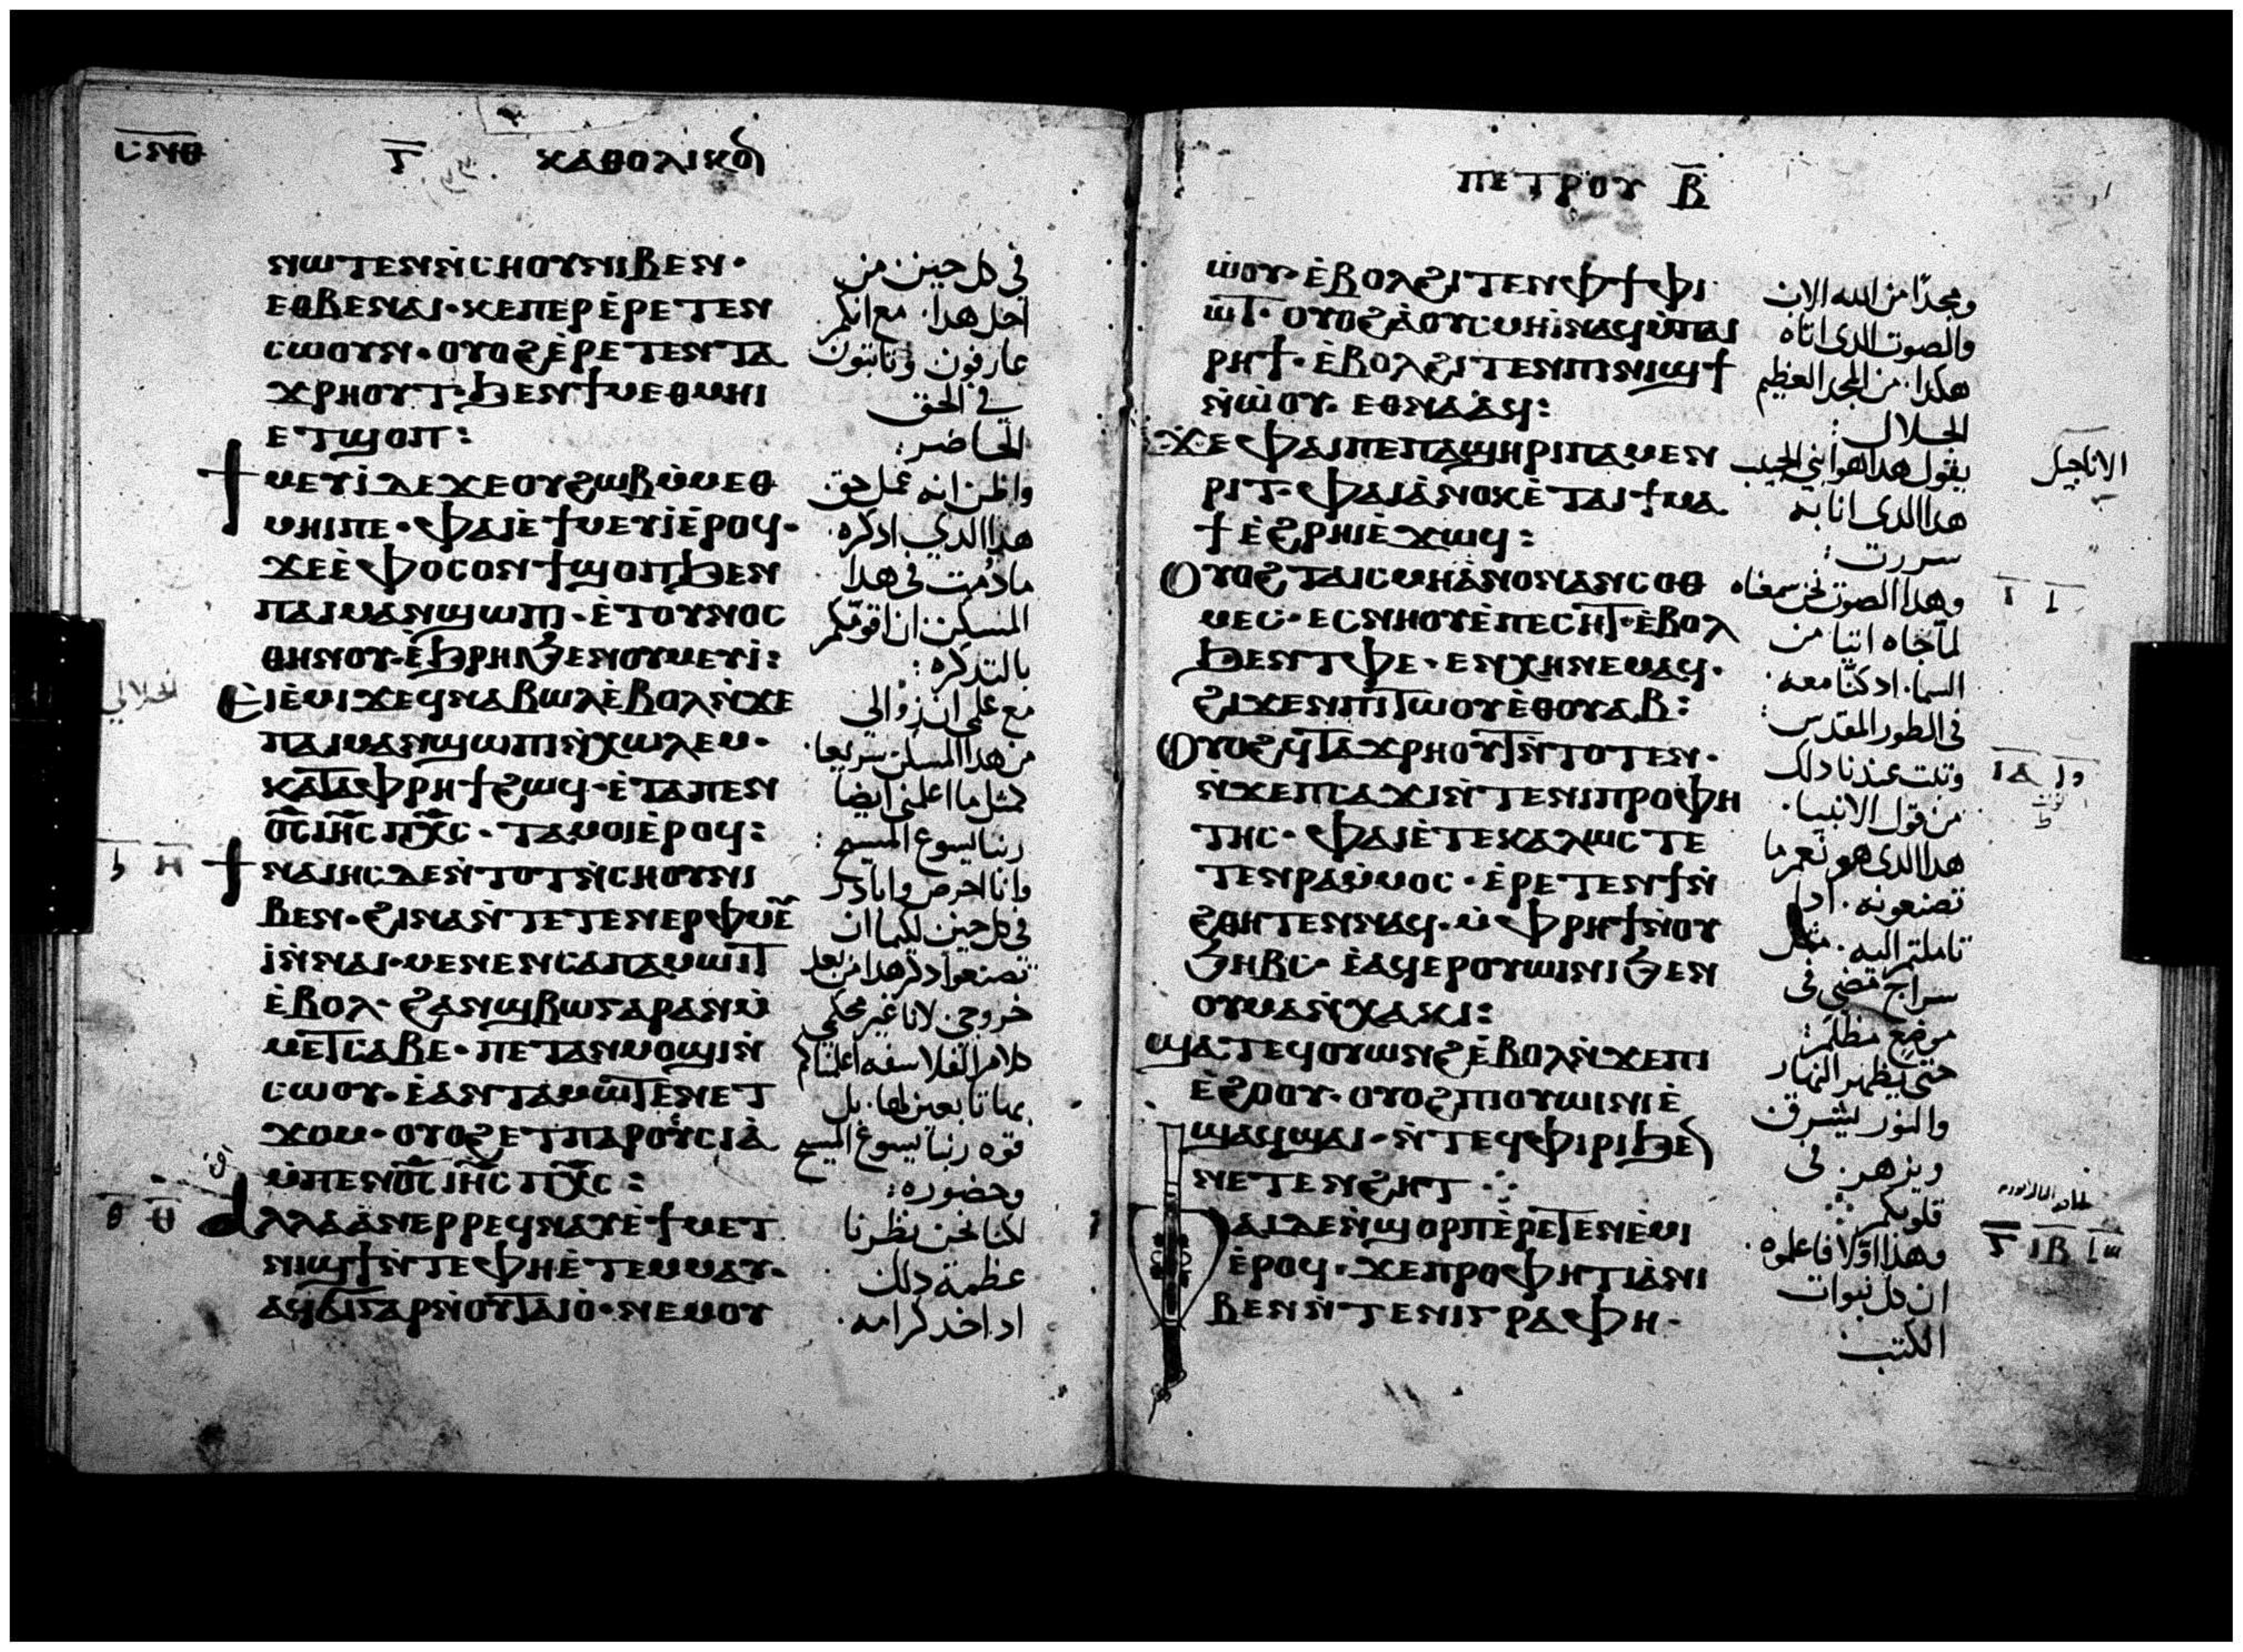 ⲤⲚⲐ
Ⲅ ⲔⲀⲐⲞⲗⲓⲕⲟⲛ
ⲛⲱⲧⲉⲛⲛ̀ⲥⲏⲟⲩⲛⲓⲃⲉⲛ·
ⲉⲑⲃⲉⲛⲁⲓ·ⲕⲉⲡⲉⲣ ⲉ̀ⲣⲉⲧⲉⲛ
ⲥⲱⲟⲩⲛ·ⲟⲩⲟϩ ⲉ̀ⲣⲉⲧⲉⲛⲧⲁ
ϫⲣⲏⲟⲩⲧ·ϧⲉⲛϯⲙⲉⲑⲙⲏⲓ
ⲉⲧϣⲟⲡ:
ϯⲙⲉⲩⲓ̀ ⲇⲉϫⲉⲟⲩϩⲱⲃⲙ̀ⲙⲉⲑ
ⲙⲏⲓⲡⲉ·ⲫⲁⲓⲉ̀ϯⲙⲉⲩⲓ̀ⲉ̀ⲣⲟϥ·
ϫⲉⲉ̀ⲫⲟⲥⲟⲛϯϣⲟⲡϧⲉⲛ
ⲡⲁⲓⲙⲁⲛϣⲱⲡⲓ·ⲉ̀ⲧⲟⲩⲛⲟⲥ
ⲑⲏⲛⲟⲩ·ⲉ̀ϩⲣⲏⲓϧⲉⲛⲟⲩⲙⲉⲩⲓ̀:
ⲉⲓⲉ̀ⲙⲓϫⲉϥⲛⲁⲃⲱⲗⲉ̀ⲃⲟⲗⲛ̀ϫⲉ
ⲡⲁⲓⲙⲁⲛϣⲱⲡⲓⲛ̀ⲭⲱⲗⲉⲙ·
ⲕⲁⲧⲁⲫⲣⲏϯϩⲱϥ·ⲉ̀ⲧⲁⲡⲉⲛ
ⲟ̅ⲥ̅ ⲓⲏ̅ⲥ̅ ⲡⲭ̅ⲥ̅·ⲧⲁⲙⲟⲓⲉ̀ⲣⲟϥ:
ϯⲛⲁⲓⲏⲥⲇⲉⲛ̀ⲧⲟⲧⲛ̀ⲥⲏⲟⲩⲛⲓ
ⲃⲉⲛ·ϩⲓⲛⲁⲛ̀ⲧⲉⲧⲉⲛⲉⲣⲫⲙⲉ̅
ⲓ̀ⲛ̀ⲛⲁⲓ·ⲙⲉⲛⲉⲛⲥⲁⲡⲁⲙⲱⲓⲧ
ⲉ̀ⲃⲟⲗ·ϩⲁⲛϣⲃⲱⲅⲁⲣⲁⲛⲙ̀
ⲙⲉⲧⲥⲁⲃⲉ·ⲡⲉⲧⲁⲛⲙⲟϣⲓⲛ̀
ⲥⲱⲟⲩ·ⲉ̀ⲁⲛⲧⲁⲙⲱⲧⲉⲛⲉⲧ
ϫⲟⲙ·ⲟⲩⲟϩⲉⲧⲡⲁⲣⲟⲩⲥⲓⲁ̀
ⲙ̀ⲡⲉⲛⲟ̅ⲥ̅ ⲓⲏ̅ⲥ̅ ⲡⲭ̅ⲥ̅:
ⲁⲗⲗⲁⲁ̀ⲛⲉⲣⲣⲉϥⲛⲁⲩⲉ̀ϯⲙⲉⲧ
ⲛⲓϣϯⲛ̀ⲧⲉⲫⲏⲉ̀ⲧⲉⲙⲙⲁⲩ·
ⲁϥϭⲓⲅⲁⲣⲛ̀ⲟⲩⲧⲁⲓⲟ̀·ⲛⲉⲙⲟⲩ
في كل حين من
اجل هدا. مع انكم
عارفون وثابتون
في الحق
الحاضر:
واظن انه عمل حق
هدا الدي ادكره.
مادمت في هدا
المسكن. ان اقومكم
بالتدكره:
مع علمي ان زوالي
من هدا المسكن سريعا.
كمثل ما اعلمني ايضا
ربنا يسوع المسيح:
وانا احرص وابادر
في كل حين لكيما ان
تصنعوا دكر هدا من بعد
خروجي. لانا غير محكمي
كلام الفلاسفه اعلمناكم
بها تابعين لها. بل
قوه ربنا يسوع المسيح
وحضوره:
لكنا نحن نظرنا
عظمة دلك
اد اخد كرامه.
Ⲏ
Ⲑ
ⲠⲈⲦⲢⲞⲨ Ⲃ̅
ⲱ̀ⲟⲩ·ⲉ̀ⲃⲟⲗϩⲓⲧⲉⲛⲫϯⲫⲓ
ⲱⲧ·ⲟⲩⲟϩⲁ̀ⲟⲩⲥⲙⲏⲓ̀ⲛⲁϥⲙ̀ⲡⲁⲓ
ⲣⲏϯ·ⲉ̀ⲃⲟⲗϩⲓⲧⲉⲛⲡⲓⲛⲓϣϯ
ⲛ̀ⲱ̀ⲟⲩ·ⲉⲑⲛⲁⲁ̀ϥ:
ϫⲉⲫⲁⲓⲡⲉⲡⲁϣⲏⲣⲓⲡⲁⲙⲉⲛ
ⲣⲓⲧ·ⲫⲁⲓⲁ̀ⲛⲟⲕⲉ̀ⲧⲁⲓϯⲙⲁ
ϯⲉ̀ϩⲣⲏⲓⲉ̀ϫⲱϥ:
ⲟⲩⲟϩⲧⲁⲓⲥⲙⲏⲁ̀ⲛⲟⲛⲁⲛⲥⲟⲑ
ⲙⲉⲥ·ⲉⲥⲛⲏⲟⲩⲉ̀ⲡⲉⲥⲏⲧ·ⲉ̀ⲃⲟⲗ
ϧⲉⲛⲧⲫⲉ·ⲉⲛⲭⲏⲛⲉⲙⲁϥ·
ϩⲓϫⲉⲛⲡⲓⲧⲱⲟⲩⲉ̀ⲑⲟⲩⲁⲃ:
ⲟⲩⲟϩϥⲧⲁϫⲣⲏⲟⲩⲧⲛ̀ⲧⲟⲧⲉⲛ·
ⲛ̀ϫⲉⲡⲥⲁϫⲓⲛ̀ⲧⲉⲛⲓⲡⲣⲟⲫⲏ
ⲧⲏⲥ·ⲫⲁⲓⲉ̀ⲧⲉⲕⲁⲗⲱⲥⲧⲉ
ⲧⲉⲛⲣⲁⲙ̀ⲙⲟⲥ·ⲉ̀ⲣⲉⲧⲉⲛϯⲛ̀
ϩⲑⲏⲧⲉⲛⲛⲁϥ·ⲙ̀ⲫⲣⲏϯⲛ̀ⲟⲩ
ϧⲏⲃⲥ·ⲉ̀ⲁϥⲉⲣⲟⲩⲱⲓⲛⲓϧⲉⲛ
ⲟⲩⲙⲁⲛ̀ⲭⲁⲕⲓ:
ϣⲁⲧⲉϥⲟⲩⲱⲛϩⲉ̀ⲃⲟⲗⲛ̀ϫⲉⲡⲓ
ⲉ̀ϩⲟⲟⲩ·ⲟⲩⲟϩⲡⲓⲟⲩⲱⲓⲛⲓⲉ̀
ϣⲁϥϣⲁⲓ·ⲛ̀ⲧⲉϥⲫⲓⲣⲓϧⲉⲛ
ⲛⲉⲧⲉⲛϩⲏⲧ
ⲫⲁⲓⲇⲉⲛ̀ϣⲟⲣⲡⲉ̀ⲣⲉⲧⲉⲛⲉ̀ⲙⲓ
ⲉ̀ⲣⲟϥ·ϫⲉⲡⲣⲟⲫⲏⲧⲓⲁ̀ⲛⲓ
ⲃⲉⲛⲛ̀ⲧⲉⲛⲓⲅⲣⲁⲫⲏ·
ومجدًا من الله الاب
والصوت الدى اتاه
هكدا. من المجد العظيم
الجلال:
يقول هدا هو ابني الحبيب
هدا الدى انا به
سررت:
وهدا الصوت نحن سمعناه
لما جاه اتيا من
السما. اد كنا معه.
في الطور المقدس:
وثبت عندنا دلك
من قول الانبيا.
هدا الدى هو نعم ما
تصنعونه. ادا
تاملتم اليه. مثل
سراج مضي في
موضع مظلم:
حتى يظهر النهار
والنور ليشرق
ويزهر. في
قلوبكم
وهدا اولا فاعلموه.
ان كل نبوات
الكتب
الاناجيل
ⲒⲀ
Ⲅ ⲒⲂ